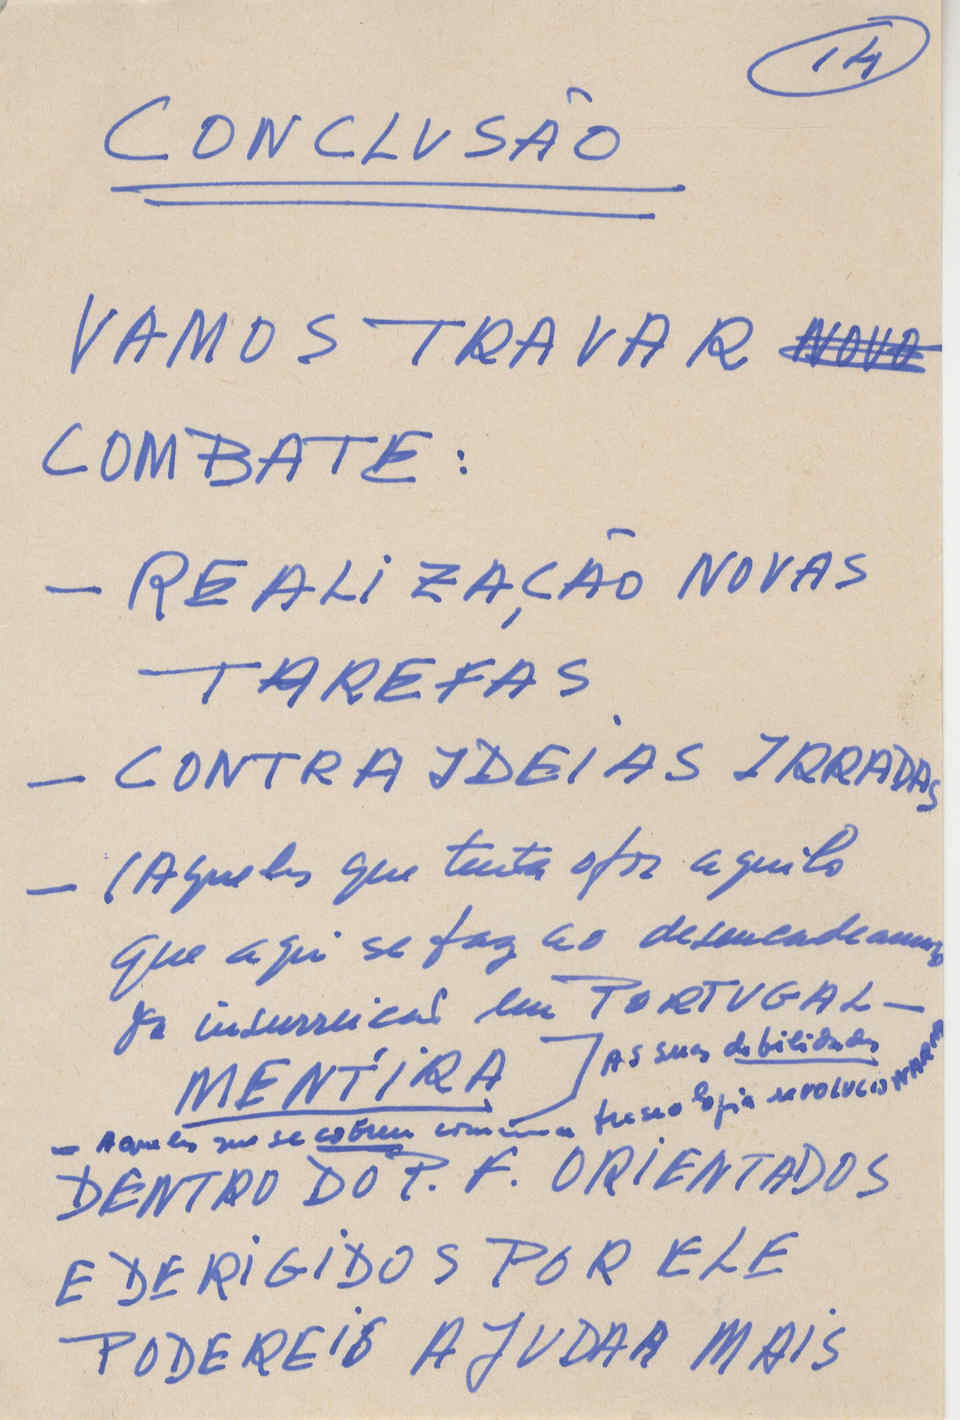 14
CONCLUSÃO
VAMOS TRAVAR NOVO
COMBATE:
- REALIZAÇÃO NOVAS
TAREFAS
- CONTRA IDEIAS IRRADAS
- (Aqueles que tenta opor aquilo
que aqui se faz ao
da insurreição em PORTUGAL -
MENTIRA
AS suas debilidades
- Aqueles que se cobrem com uma fraseologia REVOLUCIONARIA
DENTRO DO P. F. ORIENTADOS
E DERIGIDOS POR ELE
PODEREIS AJUDAR MAIS